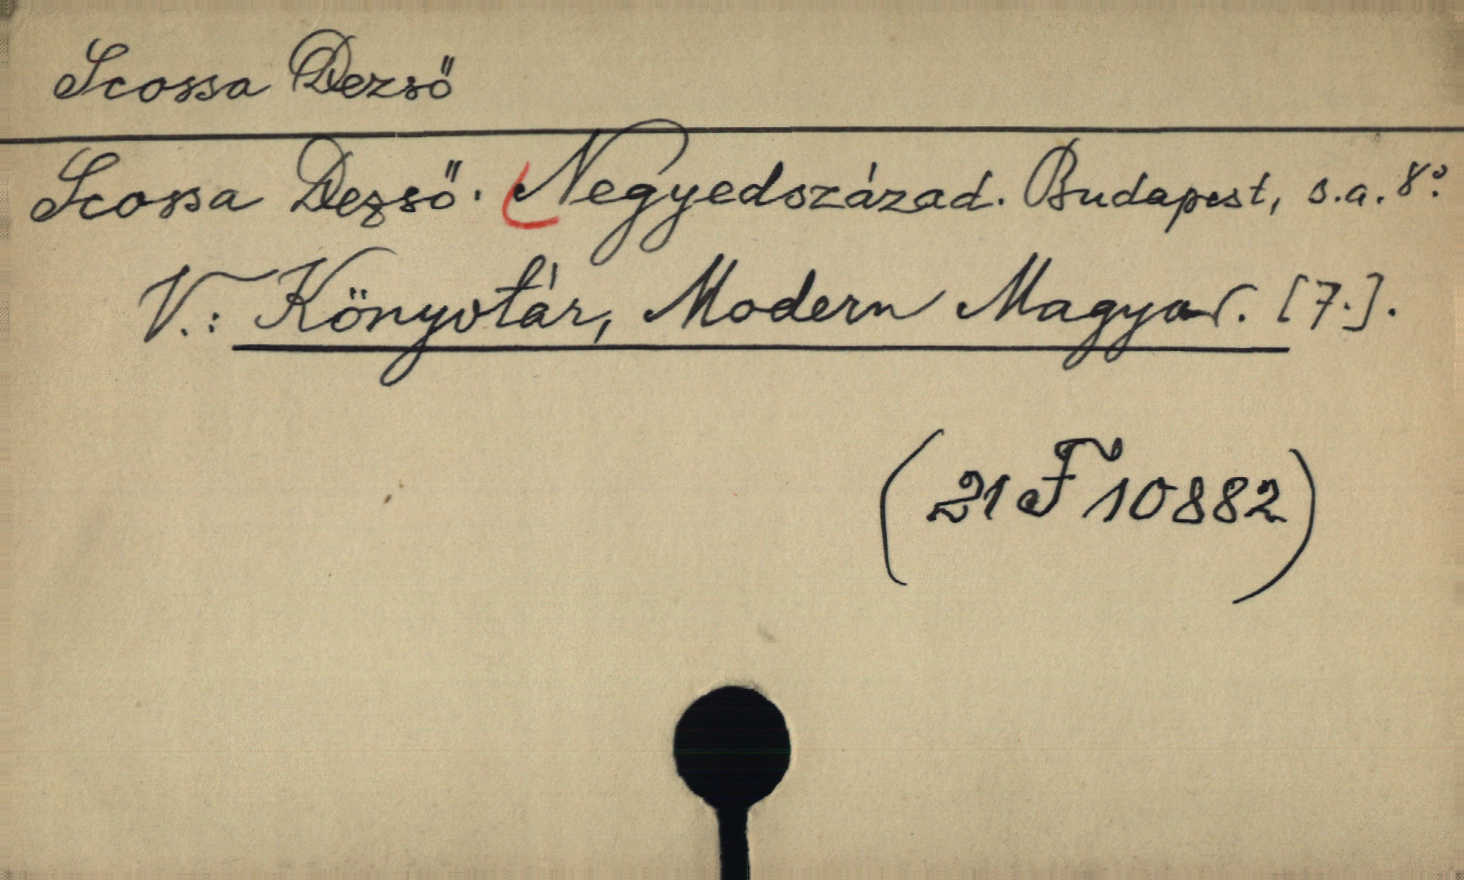 Scossa Dezső
Scossa Dezső. Negyedszázad. Budapest, s.a. 8°.
V.: Könyvtár, Modern Magyar. [7.].
(21 F 10882)